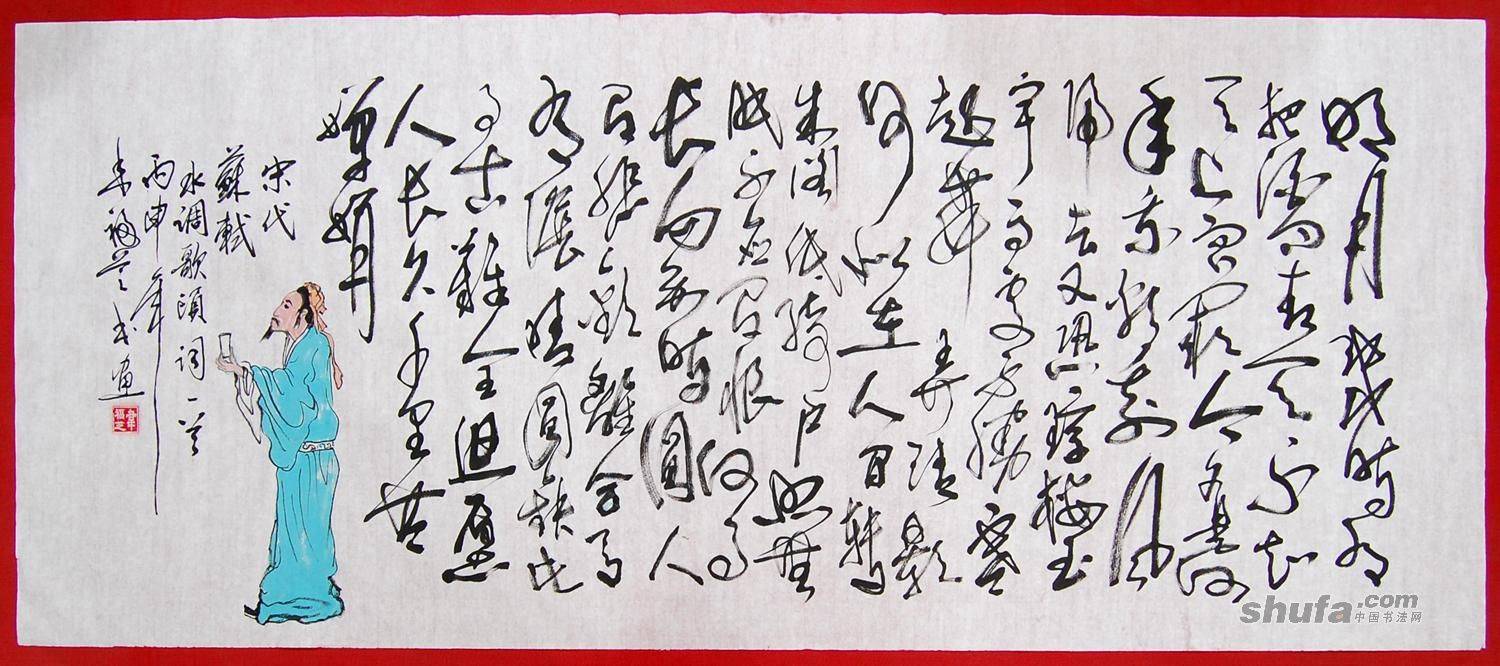 明月幾時有
把酒問青天不知
天上宮闕今夕是何
年我欲乘風
歸去又恐瓊樓玉
宇高處不勝寒
起舞弄清影
何似在人间轉
朱閣低綺户照無
眠不應有恨何事
長向别時圓人
有悲歡離合月
有陰晴圓缺此
事古難全但願
人長久千里共
嬋娟
宋代
蘇軾
水調歌頭詞一首
丙申年
福芝书画
shufa.com
中国书法网